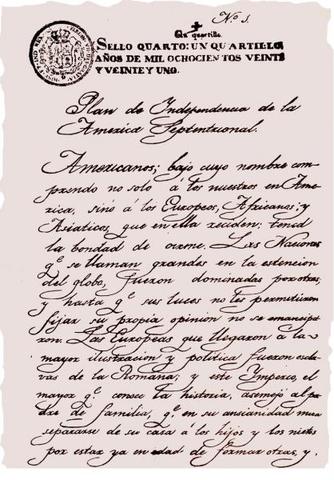 Nº 1.
Un quartillo
SELLO QUARTO: UN QUARTILLO,
AÑOS DE MIL OCHOCIENTOS VEINTE
Y VEINTE Y UNO.
Plan de Independencia de la
America Septentrional.
Americanos; bajo cuyo nombre com-
prendo no solo á los nuestros en Ame-
rica, sinó á los Europeos, Africanos; y
Asiaticos, que en ella reciden: tened
la bondad de oirme. Las Naciones
qe. se llaman grandes en la estencion
del globo, fueron dominadas por otras,
y hasta qe. sus luces no les permitieron
fijar su propia opinion no se emancipa-
ron. Las Europeas que llegaron á la
mayor ilustracion y politica fueron escla-
vas de la Romana; y este Ymperio, el
mayor qe. conoce la historia, asemejó al pa-
dre de familia, qe. en su ancianidad mira
separarse de su casa á los hijos y los nietos
por estar ya en edad de formar otras, y